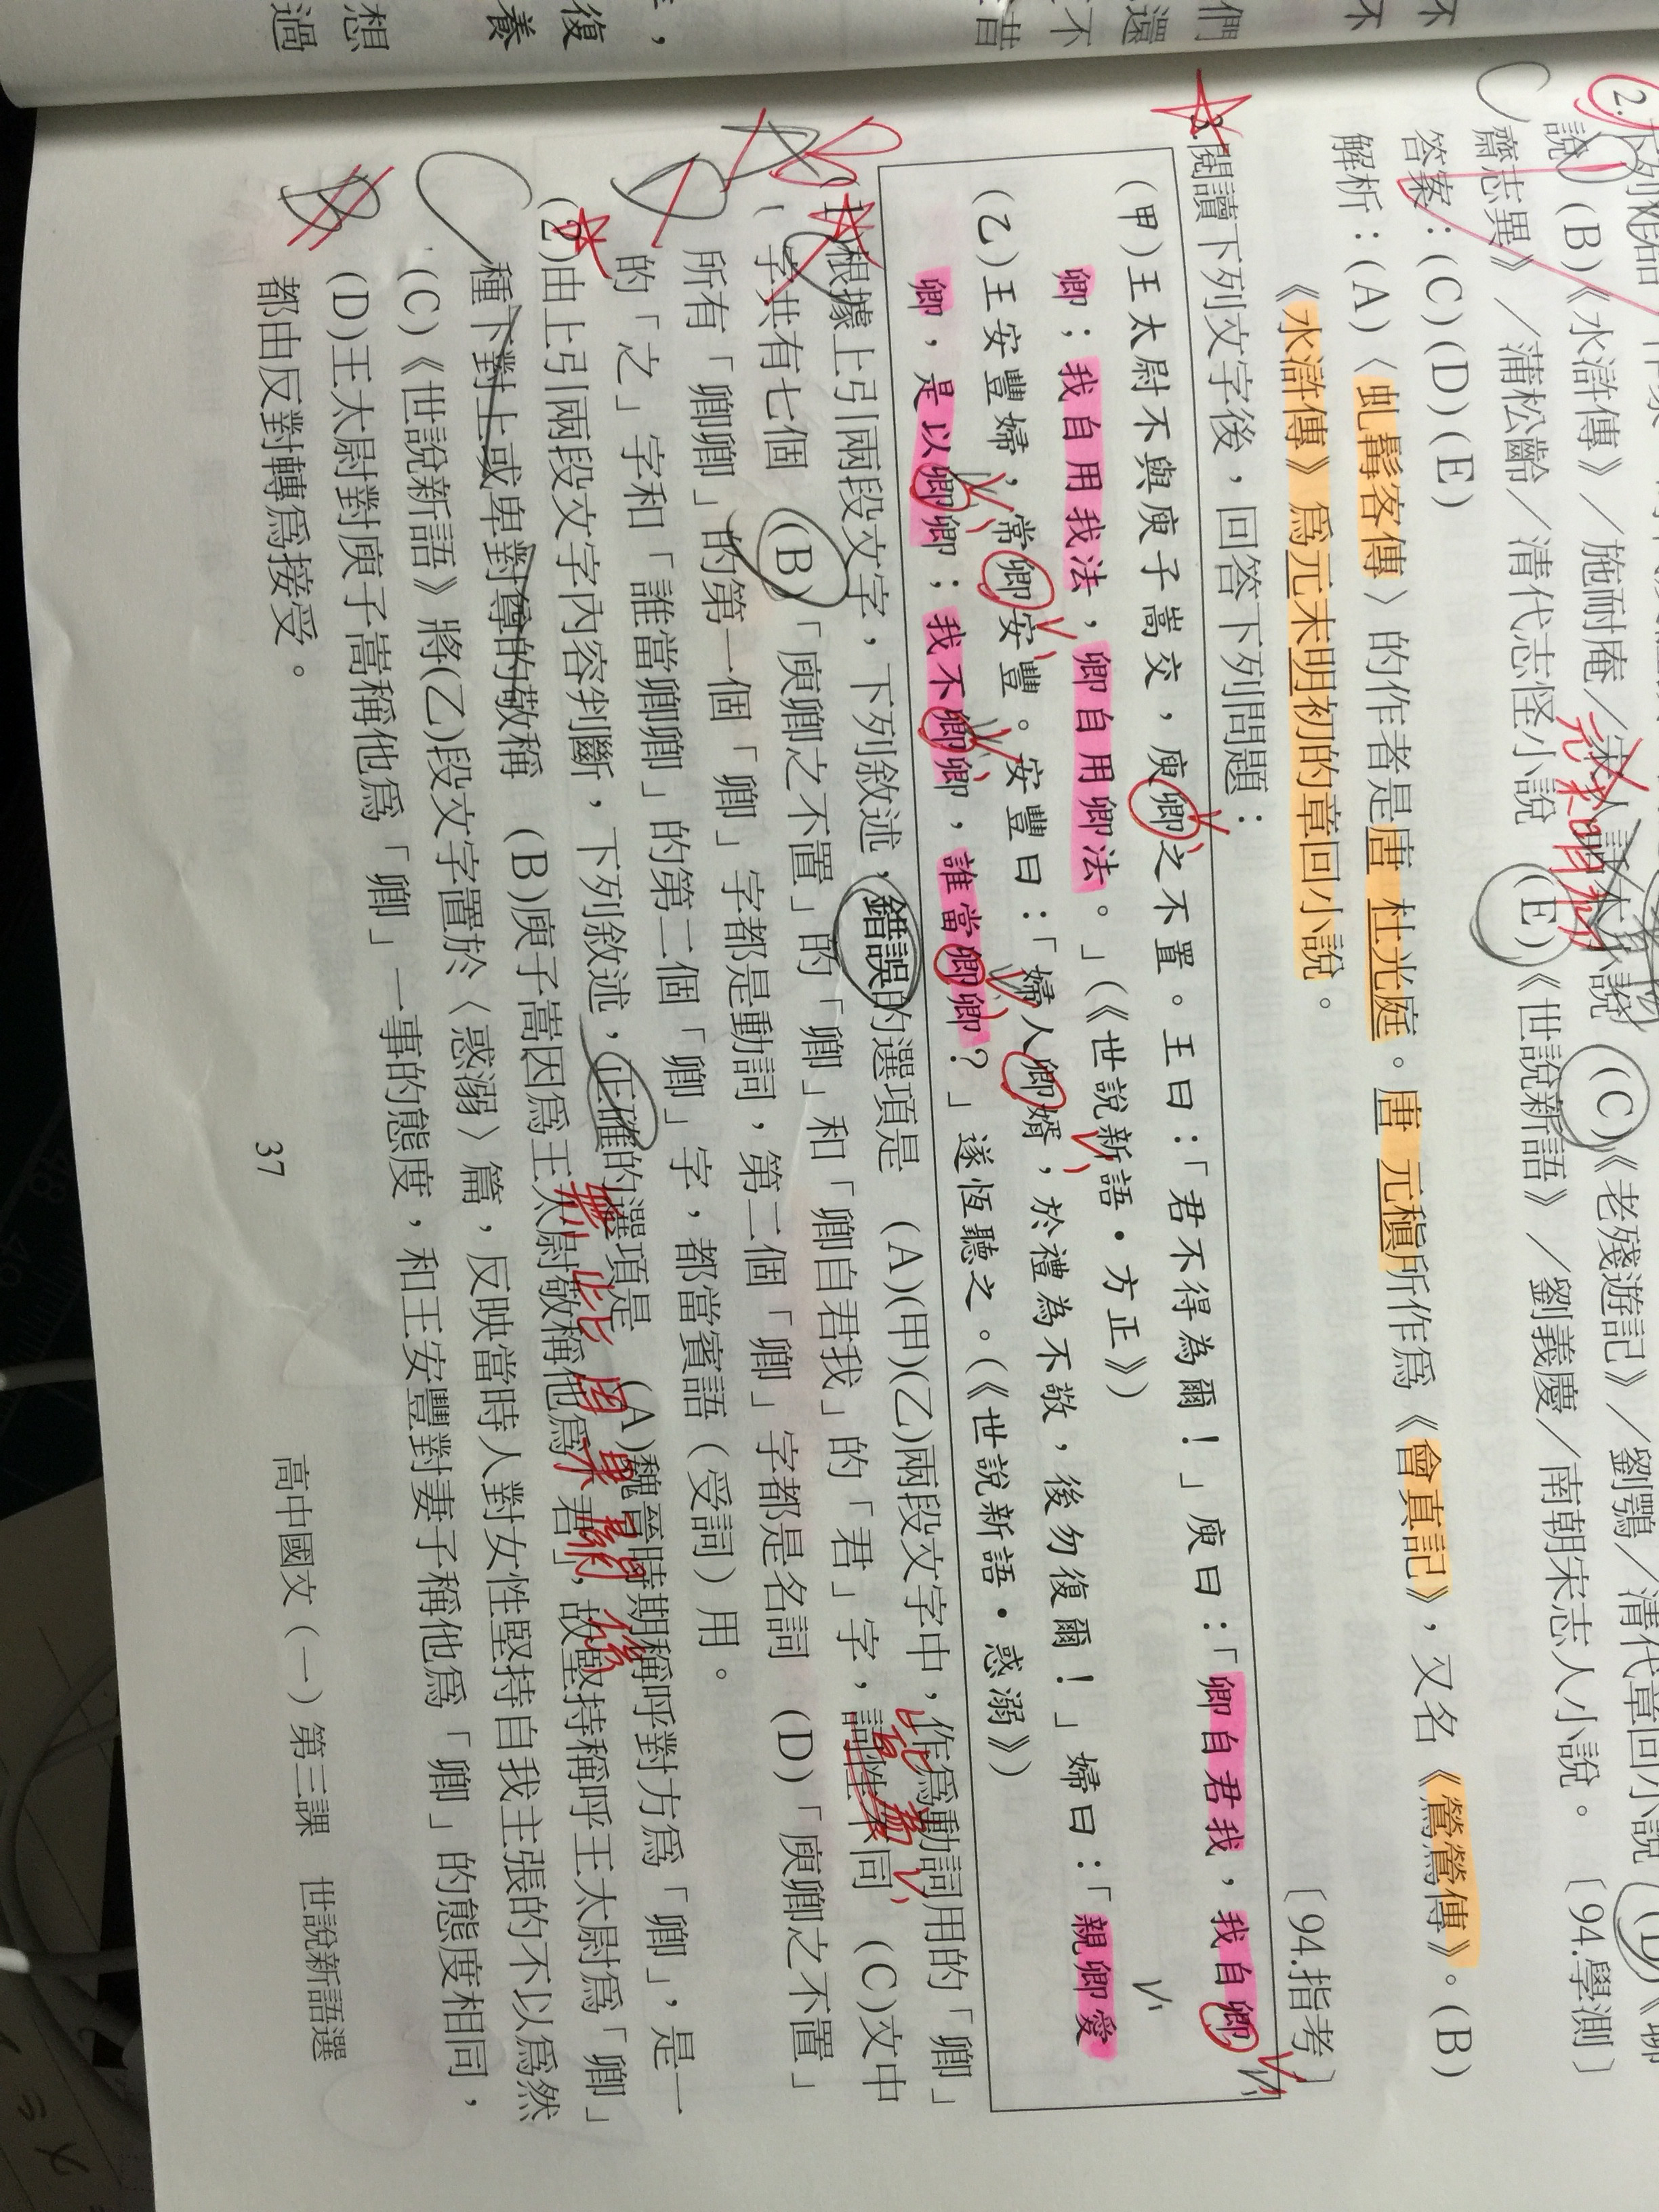 2.
說 (B)《水滸傳》／施耐庵／宋人話本小說 (C)《老殘遊記》／劉鶚／清代章回小說 (D)《聊
齋志異》／蒲松齡／清代志怪小說 (E)《世說新語》／劉義慶／南朝宋志人小說。〔94.學測〕
答案：(C)(D)(E)
解析：(A)〈虬髯客傳〉的作者是唐 杜光庭。唐 元稹所作爲《會真記》，又名《鶯鶯傳》。(B)
《水滸傳》爲元末明初的章回小說。
3.閱讀下列文字後，回答下列問題：〔94.指考〕
(甲)王太尉不與庾子嵩交，庾卿之不置。王曰：「君不得為爾！」庾曰：「卿自君我，我自
卿；我自用我法，卿自用卿法。」(《世說新語·方正》)
(乙)王安豐婦，常卿安豐。安豐曰：「婦人卿婿，於禮為不敬，後勿復爾！」婦曰：「親卿愛
卿，是以卿卿；我不卿卿，誰當卿卿？」遂恆聽之。(《世說新語·惑溺》)
(1)根據上引兩段文字，下列敘述，錯誤的選項是 (A)(甲)(乙)兩段文字中，作爲動詞用的「卿」
字共有七個 (B)「庾卿之不置」的「卿」和「卿自君我」的「君」字，詞性不同 (C)文中
所有「卿卿」的第一個「卿」字都是動詞，第二個「卿」字都是名詞 (D)「庾卿之不置」
的「之」字和「誰當卿卿」的第二個「卿」字，都當賓語（受詞）用。
(2)由上引兩段文字內容判斷，下列敘述，正確的選項是 (A)魏晉時期稱呼對方爲「卿」，是一
種下對上或卑對尊的敬稱 (B)庾子嵩因爲王太尉敬稱他爲「君」，故堅持稱呼王太尉爲「卿」
(C)《世說新語》將(乙)段文字置於〈惑溺〉篇，反映當時人對女性堅持自我主張的不以爲然
(D)王太尉對庾子嵩稱他爲「卿」一事的態度，和王安豐對妻子稱他爲「卿」的態度相同，
都由反對轉爲接受。
37 高中國文（一）第三課 世說新語選